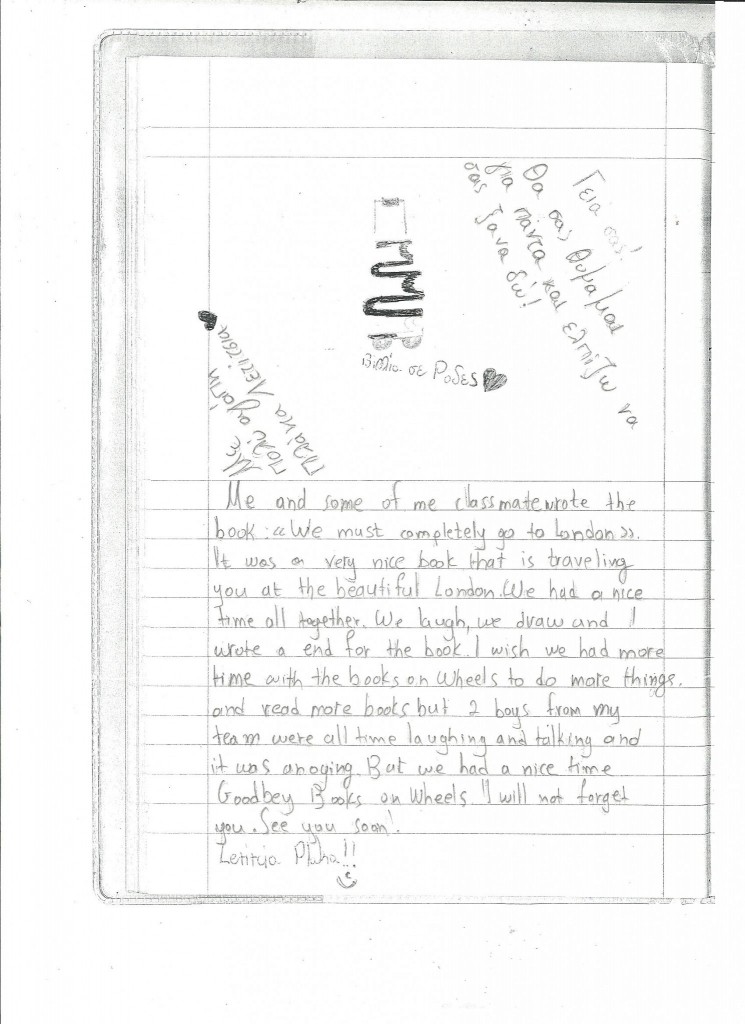 Γεια σας!
Θα σας θυμάμαι
για πάντα και ελπίζω να
σας ξανα δω!
Βιβλία σε Ροδες
Με
πολύ αγάπη
Πλάκα Λετίτσια
Me and some of me classmate wrote the
book: «We must completely go to London».
It was a very nice book that is traveling
you at the beautiful London. We had a nice
time all together. We laugh, we draw and I
wrote a end for the book. I wish we had more
time with the books on Wheels to do more things.
and read more books but 2 boys from my
team were all time laughing and talking and
it was anoying. But we had a nice time
Goodbey Books on Wheels. I will not forget
you. See you soon!
Letitsja !!